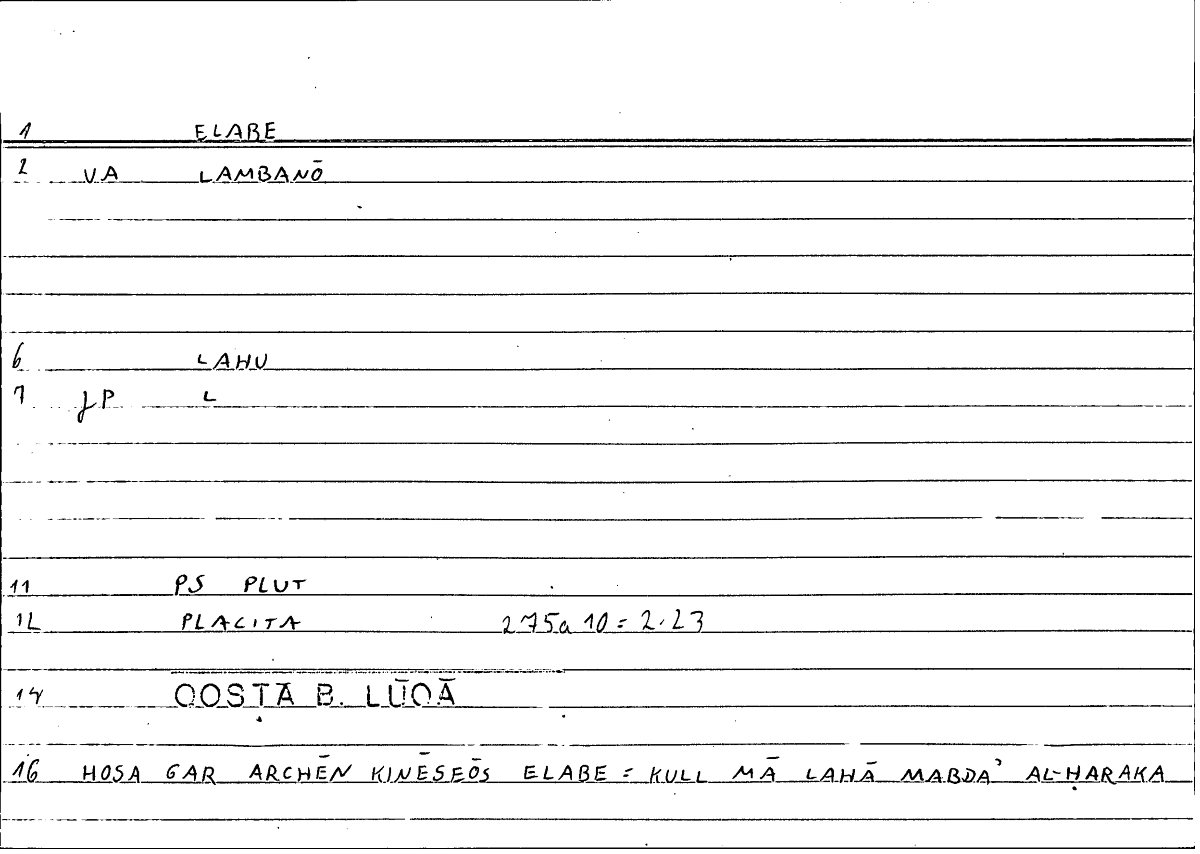 1 ELABE
2 VA LAMBANŌ
6 LAHU
7 ȷP L
11 PS PLUT
12 PLACITA 275a 10 = 2.23
14 QOSṬĀ B. LŪQĀ
16 HOSA GAR ARCHĒN KINĒSEŌS ELABE = KULL MĀ LAHĀ MABDAʾ AL-ḤARAKA